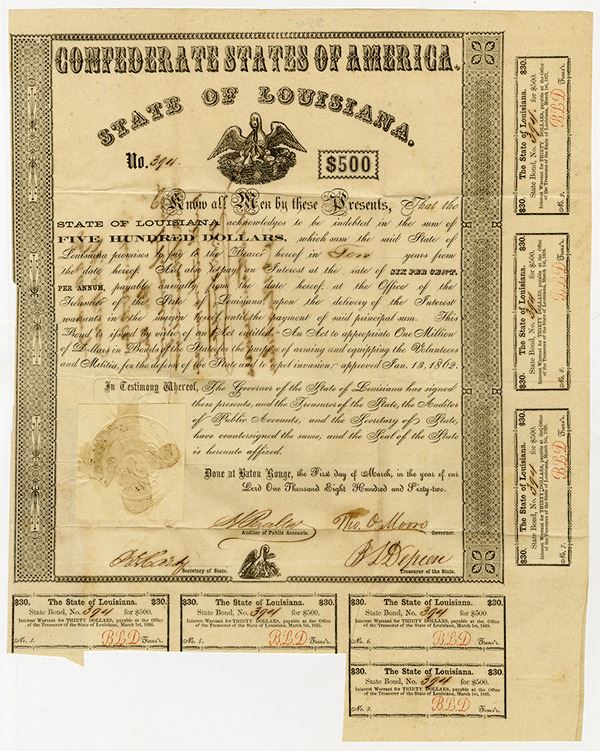 CONFEDERATE STATES OF AMERICA.
STATE OF LOUISIANA.
No. 394.
$500
Know all Men by these Presents, That the
STATE OF LOUISIANA acknowledges to be indebted in the sum of
FIVE HUNDRED DOLLARS, which sum the said State of
Louisiana promises to pay to the Bearer hereof in Ten years from
the date hereof. And also to pay an Interest at the rate of SIX PER CENT.
PER ANNUM, payable annually from the date hereof, at the Office of the
Treasurer of the State of Louisiana, upon the delivery of the Interest
warrants in the margin hereof, until the payment of said principal sum. This
Bond is issued by virtue of an Act entitled "An Act to appropriate One Million
of Dollars in Bonds of the State for the purpose of arming and equipping the Volunteers
and Militia, for the defense of the State and to repel invasion;" approved Jan. 13, 1862.
In Testimony Whereof, The Governor of the State of Louisiana has signed
these presents, and the Treasurer of the State, the Auditor
of Public Accounts, and the Secretary of State,
have countersigned the same, and the Seal of the State
is hereunto affixed.
Done at Baton Rouge, the First day of March, in the year of our
Lord One Thousand Eight Hundred and Sixty-two.
Tho. O Moore
Auditor of Public Accounts.
Governor.
Secretary of State.
Treasurer of the State.
$30. The State of Louisiana. $30.
State Bond, No. 394. for $500.
Interest Warrant for THIRTY DOLLARS, payable at the Office
of the Treasurer of the State of Louisiana, March 1st,
BLD Treas'r.
$30. The State of Louisiana. $30.
State Bond, No. 394 for $500.
Interest Warrant for THIRTY DOLLARS, payable at the Office
of the Treasurer of the State of Louisiana, March 1st,
BLD Treas'r.
$30. The State of Louisiana. $30.
State Bond, No. 394 for $500.
Interest Warrant for THIRTY DOLLARS, payable at the Office
of the Treasurer of the State of Louisiana, March 1st,
No. 7. BLD Treas'r.
$30. The State of Louisiana. $30.
State Bond, No. 394 for $500.
Interest Warrant for THIRTY DOLLARS, payable at the Office
of the Treasurer of the State of Louisiana, March 1st,
BLD Treas'r.
$30. The State of Louisiana. $30.
State Bond, No. 394 for $500.
Interest Warrant for THIRTY DOLLARS, payable at the Office
of the Treasurer of the State of Louisiana, March 1st,
No. 5. BLD Treas'r.
$30. The State of Louisiana. $30.
State Bond, No. 394 for $500
Interest Warrant for THIRTY DOLLARS, payable at the Office
of the Treasurer of the State of Louisiana, March 1st,
No. 6. BLD Treas'r.
$30. The State of Louisiana. $30.
State Bond, No. 394 for $500.
Interest Warrant for THIRTY DOLLARS, payable at the Office
of the Treasurer of the State of Louisiana, March 1st,
BLD Treas'r.